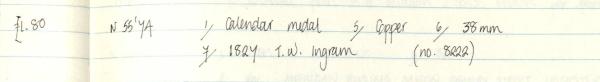 £1.80 N 55'YA 1/ Calendar medal 5/ Copper 6/ 38mm
7/ 1824 T.W. Ingram (no. 8222)